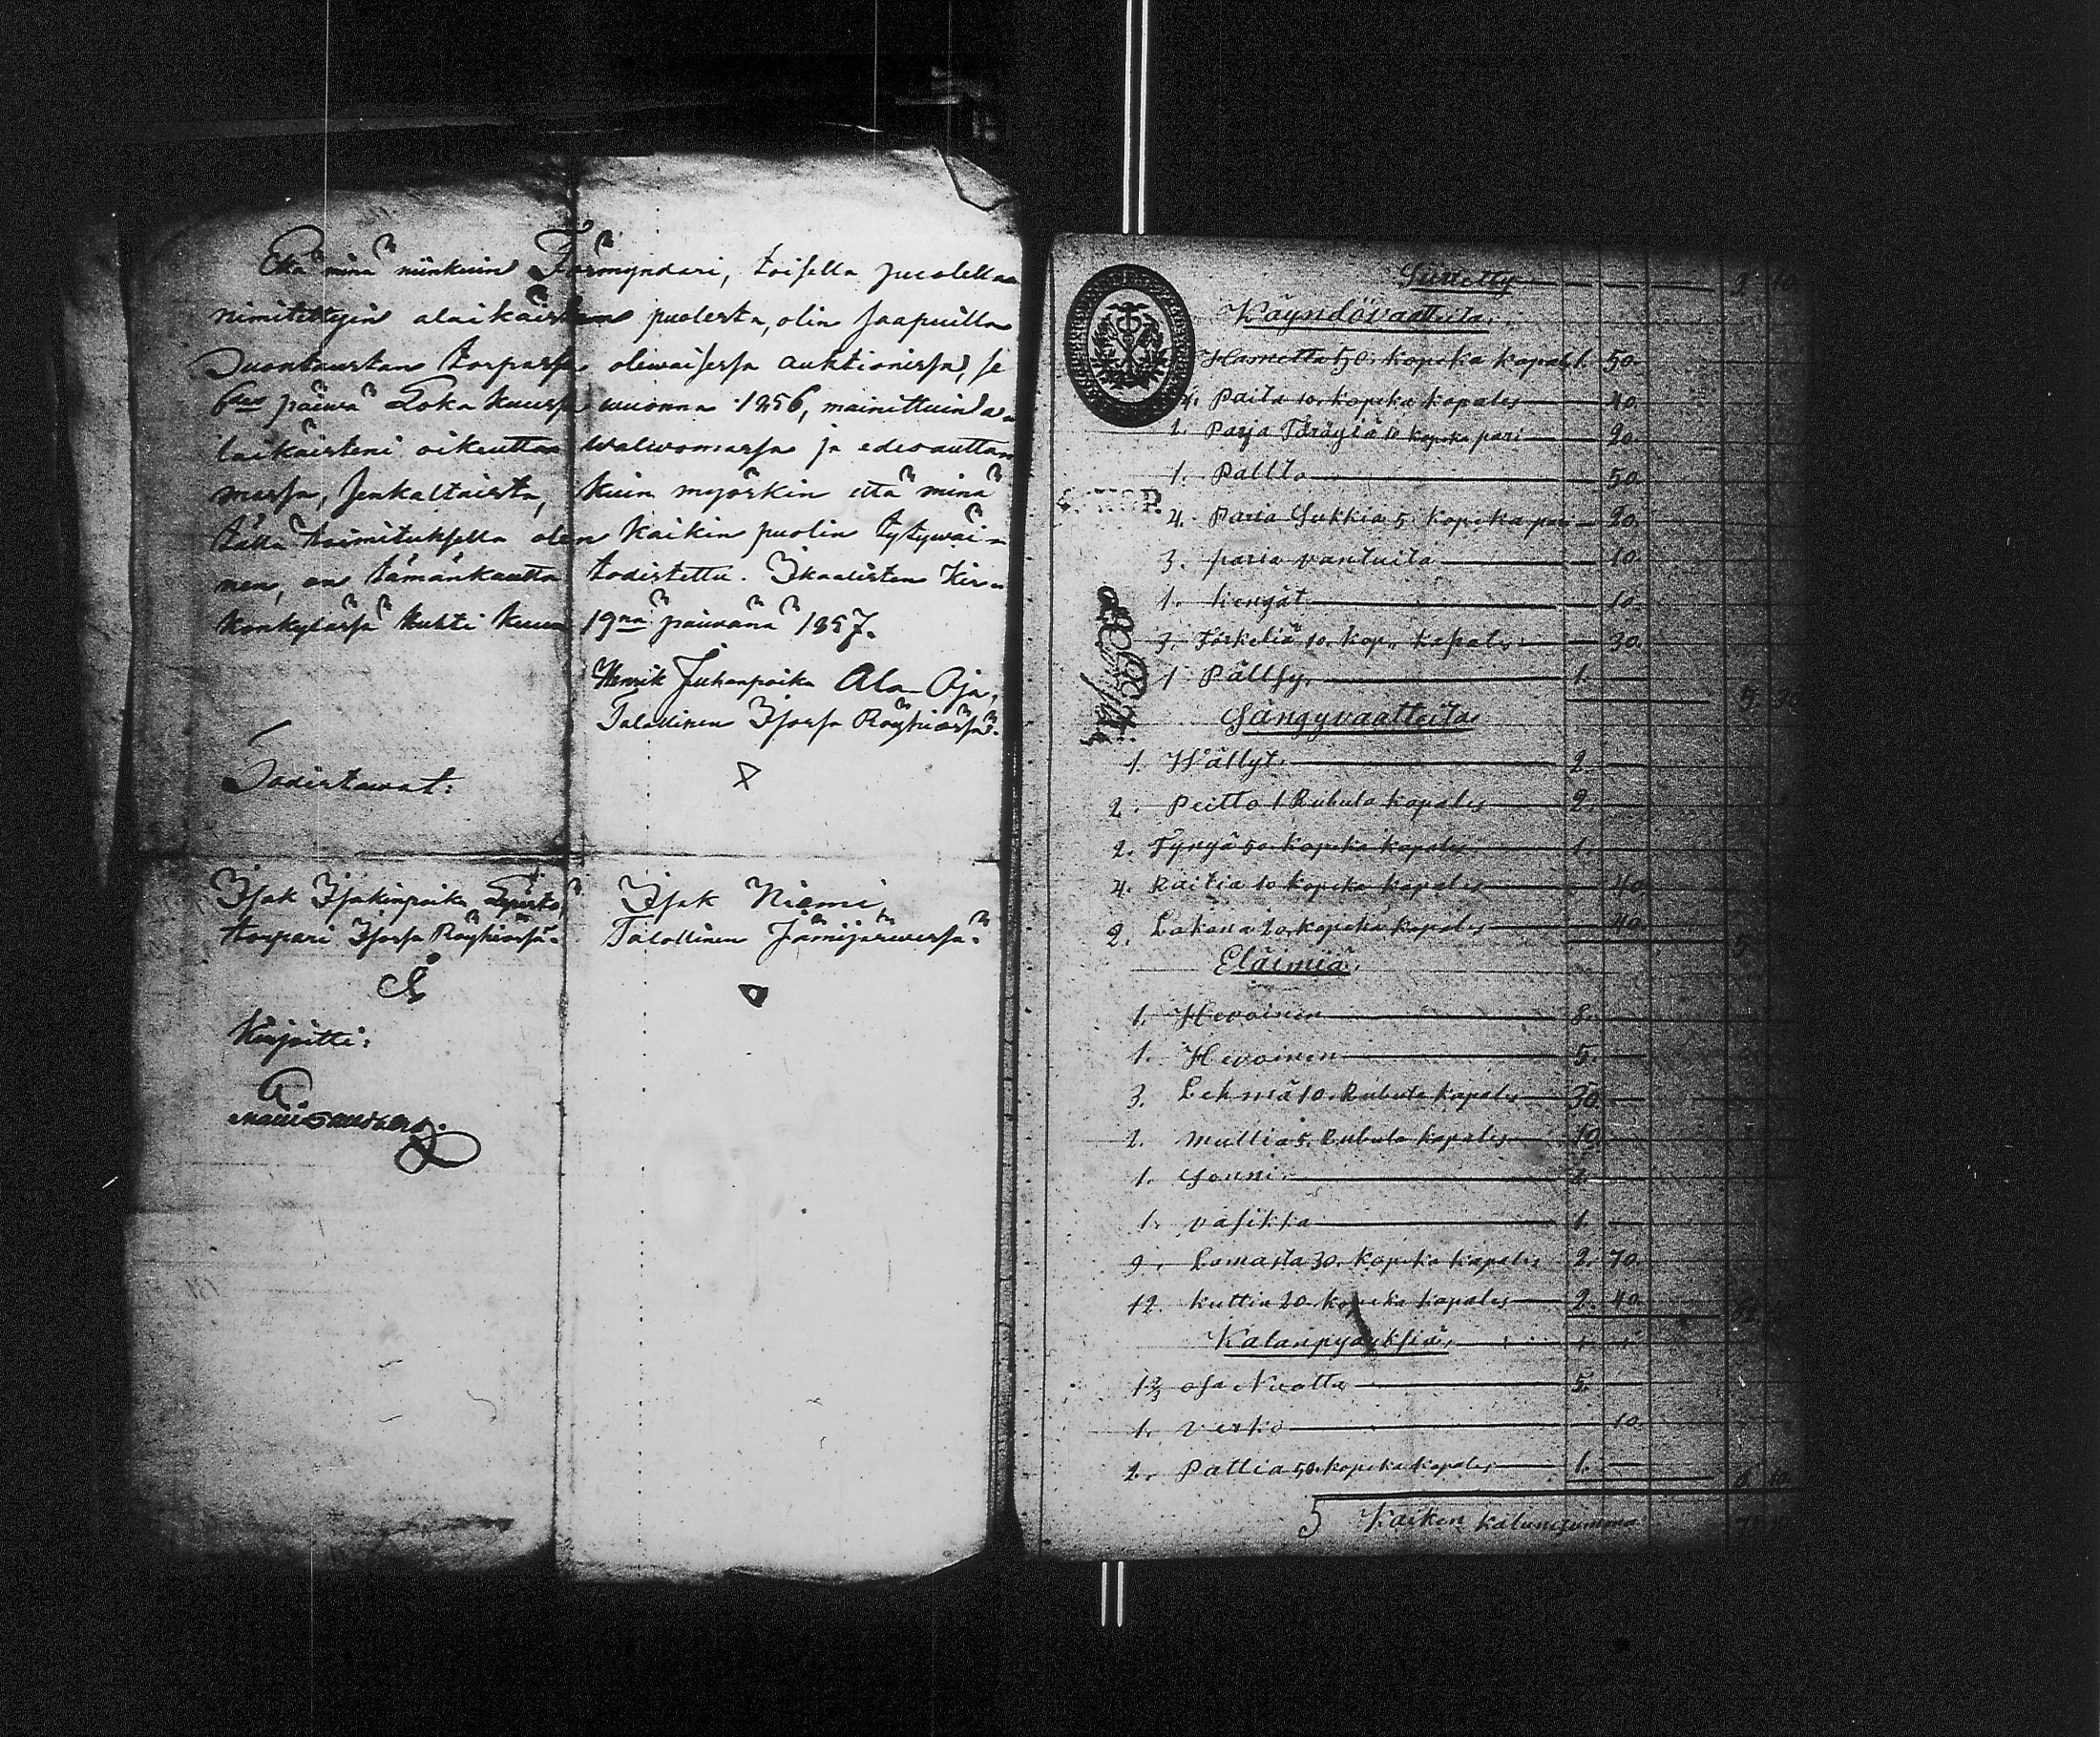 Että minä niinkuin Förmyndari, toisella puolella
nimitettyin alaikäisten puolesta, olin saapuilla
Suontaustan torpassa olewaisessa auktionissa, se
6:des päiwä Loka kuussa wuonna 1856, mainittuin a-
laikäisteni oikeuttaa walwomassa ja edesautta-
massa, senkaltaista, kuin myöskin että minä
tällä toimituksella olen kaikin puolin tytywäi-
nen, on tämänkautta todistettu. Ikaalisten Kir-
konkylässä Huhti kuun 19nä päiwänä 1857.
Henrik Juhanpoika Ala-Oja,
Talollinen Isossa Röyhiössä.
Todistawat:
Isak Isakinpoika
torpari Isossa Röyhiössä.
Isak Niemi,
Talollinen Jämijärwessä.
Kirjoitti:
Siirretty 2 10
Käyndövaatteita.
Hametta 50. kopeka kapales 1. 50.
4. Paita 10. kopeka kapales 40.
2. Parja 10 kopeka pari 20.
1. Paltto 50
4. Paria Sukkia 5. kopeka pari 20.
3. paria vantuita 10.
1. kengät 10.
3. 10. kop. kapales 30.
1 Pällsy. 1.
Sängyvaatteita
1. Wällyt. 2.
2. Peitto 1 Rubula kapales 2.
2. Tynyä 50. kopeka kapales 1.
4. Raitia 10 kopeka kapales 40
2. Lakana 20. kopeka kapales 40. 5.
Eläimiä.
1. Hevoinen 8.
1. Hevoinen 5.
3. Lehmä 10. Rubula kapales 30.
2. mullia 5. Rubula kapales 10
1. Sonni.
1. vasikka 1.
9. Lamasta 30. kopeka kapales 2. 70.
12. kuttia 20. kopeka kapales 2. 40.
Kalanpyöyksiä.
1 2/3 osa Nuotta 5.
1. verko 10.
2. Pattia 50. kopeka kapales 1. 6 10.
5 Kaiken kalunsumma